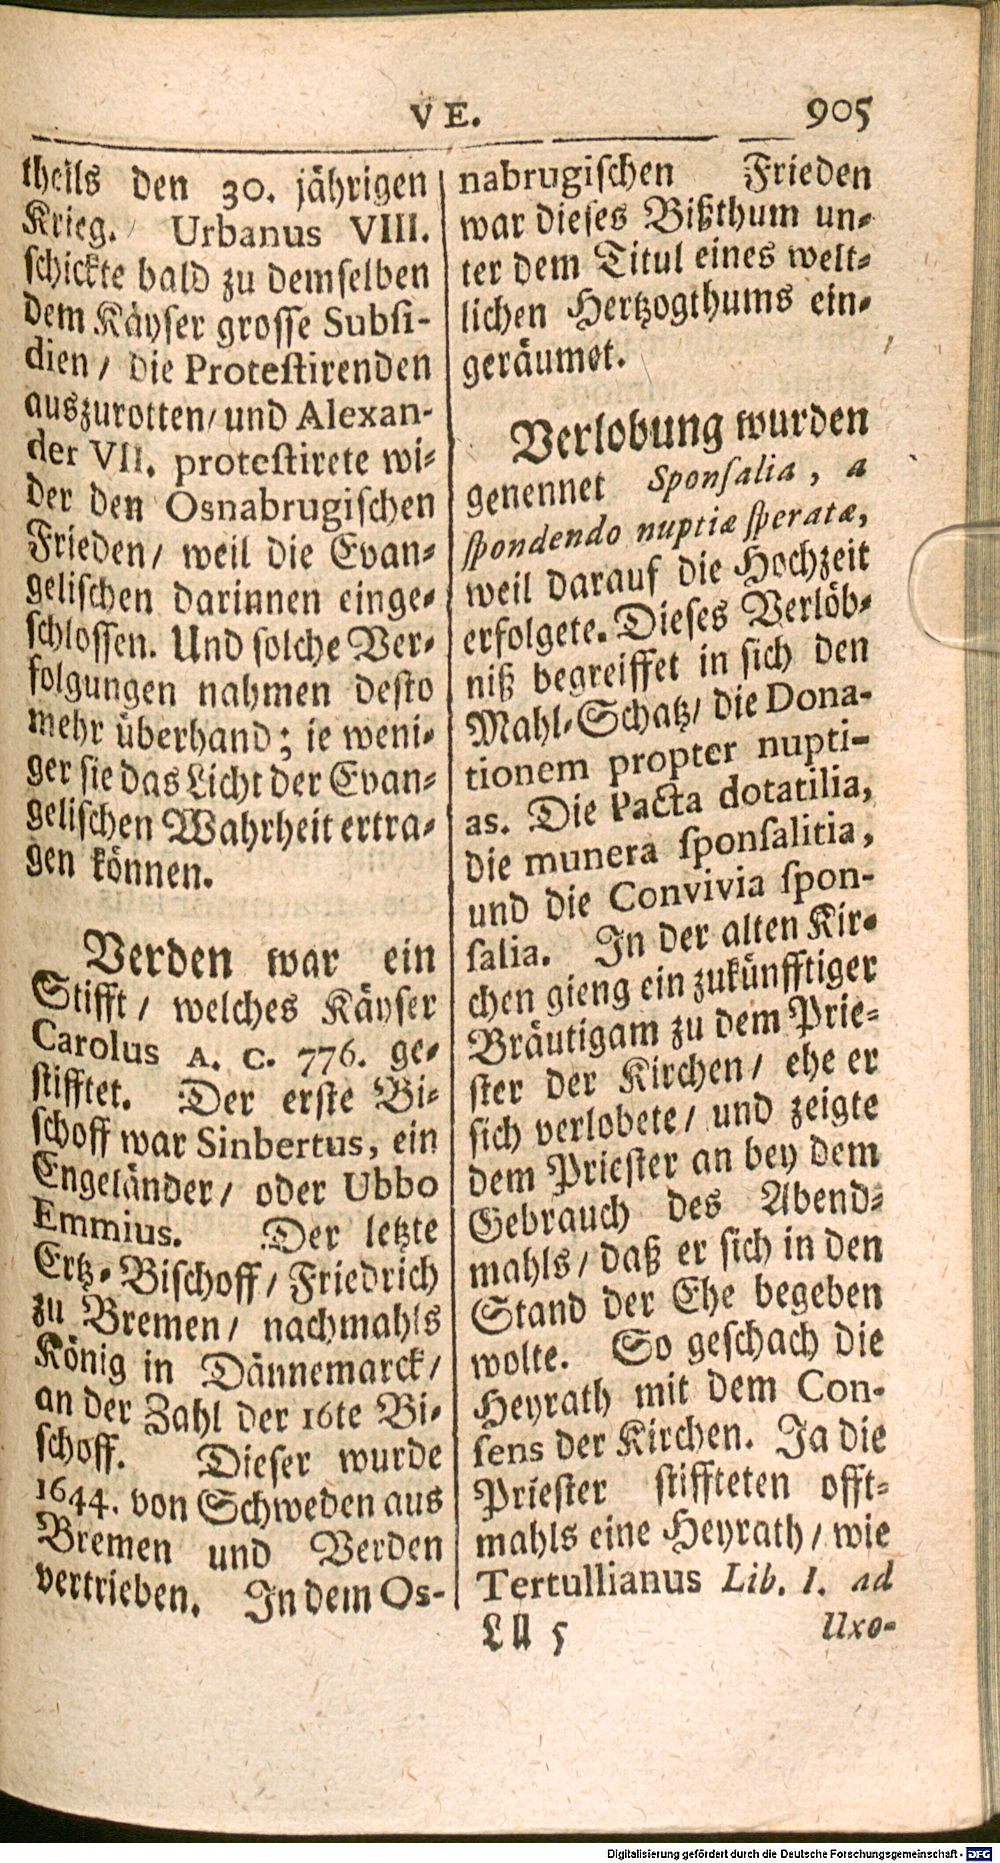 VE. 905
theils den 30. jährigen
Krieg. Urbanus VIII.
schickte bald zu demselben
dem Käyser grosse Subsi-
dien / die Protestirenden
auszurotten / und Alexan-
der VII. protestirete wi-
der den Osnabrugischen
Frieden / weil die Evan-
gelischen darinnen einge-
schlossen. Und solche Ver-
folgungen nahmen desto
mehr überhand; ie weni-
ger sie das Licht der Evan-
gelischen Wahrheit ertra-
gen können.
Verden war ein
Stifft / welches Käyser
Carolus A. C. 776. ge-
stifftet. Der erste Bi-
schoff war Sinbertus, ein
Engeländer / oder Ubbo
Emmius. Der letzte
Ertz-Bischoff / Friedrich
zu Bremen / nachmahls
König in Dännemarck /
an der Zahl der 16te Bi-
schoff. Dieser wurde
1644. von Schweden aus
Bremen und Verden
vertrieben. In dem Os-
nabrugischen Frieden
war dieses Bißthum un-
ter dem Titul eines welt-
lichen Hertzogthums ein-
geräumet.
Verlobung wurden
genennet Sponsalia, a
spondendo nuptiæ speratæ,
weil darauf die Hochzeit
erfolgete. Dieses Verlöb-
niß begreiffet in sich den
Mahl-Schatz / die Dona-
tionem propter nupti-
as. Die Pacta dotatilia,
die munera sponsalitia,
und die Convivia spon-
salia. In der alten Kir-
chen gieng ein zukünfftiger
Bräutigam zu dem Prie-
ster der Kirchen / ehe er
sich verlobete / und zeigte
dem Priester an bey dem
Gebrauch des Abend-
mahls / daß er sich in den
Stand der Ehe begeben
wolte. So geschach die
Heyrath mit dem Con-
sens der Kirchen. Ja die
Priester stiffteten offt-
mahls eine Heyrath / wie
Tertullianus Lib. I. ad
Lll 5 Uxo-
Digitalisierung gefördert durch die Deutsche Forschungsgemeinschaft - DFG